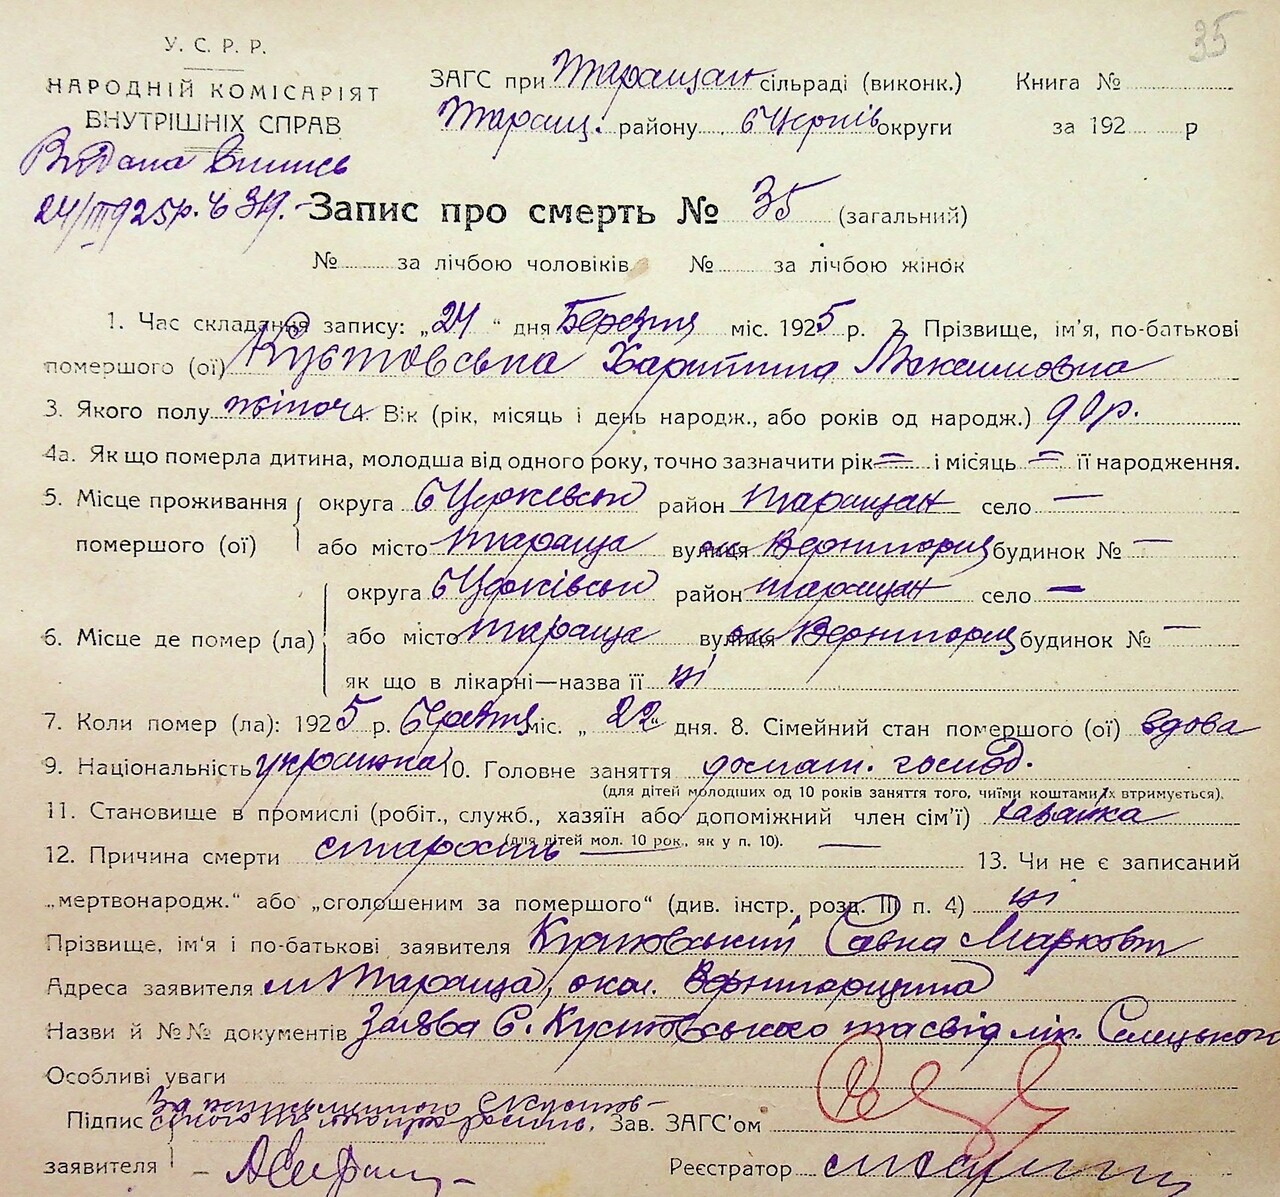 35
У. С. Р. Р.
НАРОДНІЙ КОМІСАРІЯТ
ВНУТРІШНІХ СПРАВ
Видана випись
24/III 925р. ч 319.
ЗАГС при Таращан сільраді (виконк.)
Таращ. району БЦерків округи
Книга №
за 192 р
Запис про смерть № 35 (загальний)
№ за лічбою чоловіків № за лічбою жінок
1. Час складання запису: „24" дня Березня міс. 1925 р. 2. Прізвище, ім'я, по-батькові
помершого (ої) Кустовська Харитина Максимовна
3. Якого полу жіноч 4. Вік (рік, місяць і день народж., або років од народж.) 90р.
4а. Як що померла дитина, молодша від одного року, точно зазначити рік = і місяць = її народження.
5. Місце проживання помершого (ої) округа БЦерківськ район Таращан село —
або місто Тараща вулиця будинок № —
6. Місце де помер (ла) округа БЦерківськ район Таращан село —
або місто Тараща вулиця будинок № —
як що в лікарні—назва її ні
7. Коли помер (ла): 1925 р. Березня міс. „22" дня. 8. Сімейний стан помершого (ої) вдова
9. Національність українка 10. Головне заняття домат. господ.
(для дітей молодших од 10 років заняття того, чиїми коштами їх втримується).
11. Становище в промислі (робіт., служб., хазяїн або допоміжний член сім'ї) хазяйка
(для дітей мол. 10 рок., як у п. 10).
12. Причина смерти старость — — 13. Чи не є записаний
„мертвонародж." або „оголошеним за помершого" (див. інстр. розд. III п. 4) ні
Прізвище, ім'я і по-батькові заявителя Кустовський Савна Марков
Адреса заявителя м Тараща, окол.
Назви й №№ документів Заява С. Кустовського та свід лік. Селецького
Особливі уваги
Підпис заявителя За неписьменного С Кустов-
ського
Зав. ЗАГС'ом
Реєстратор